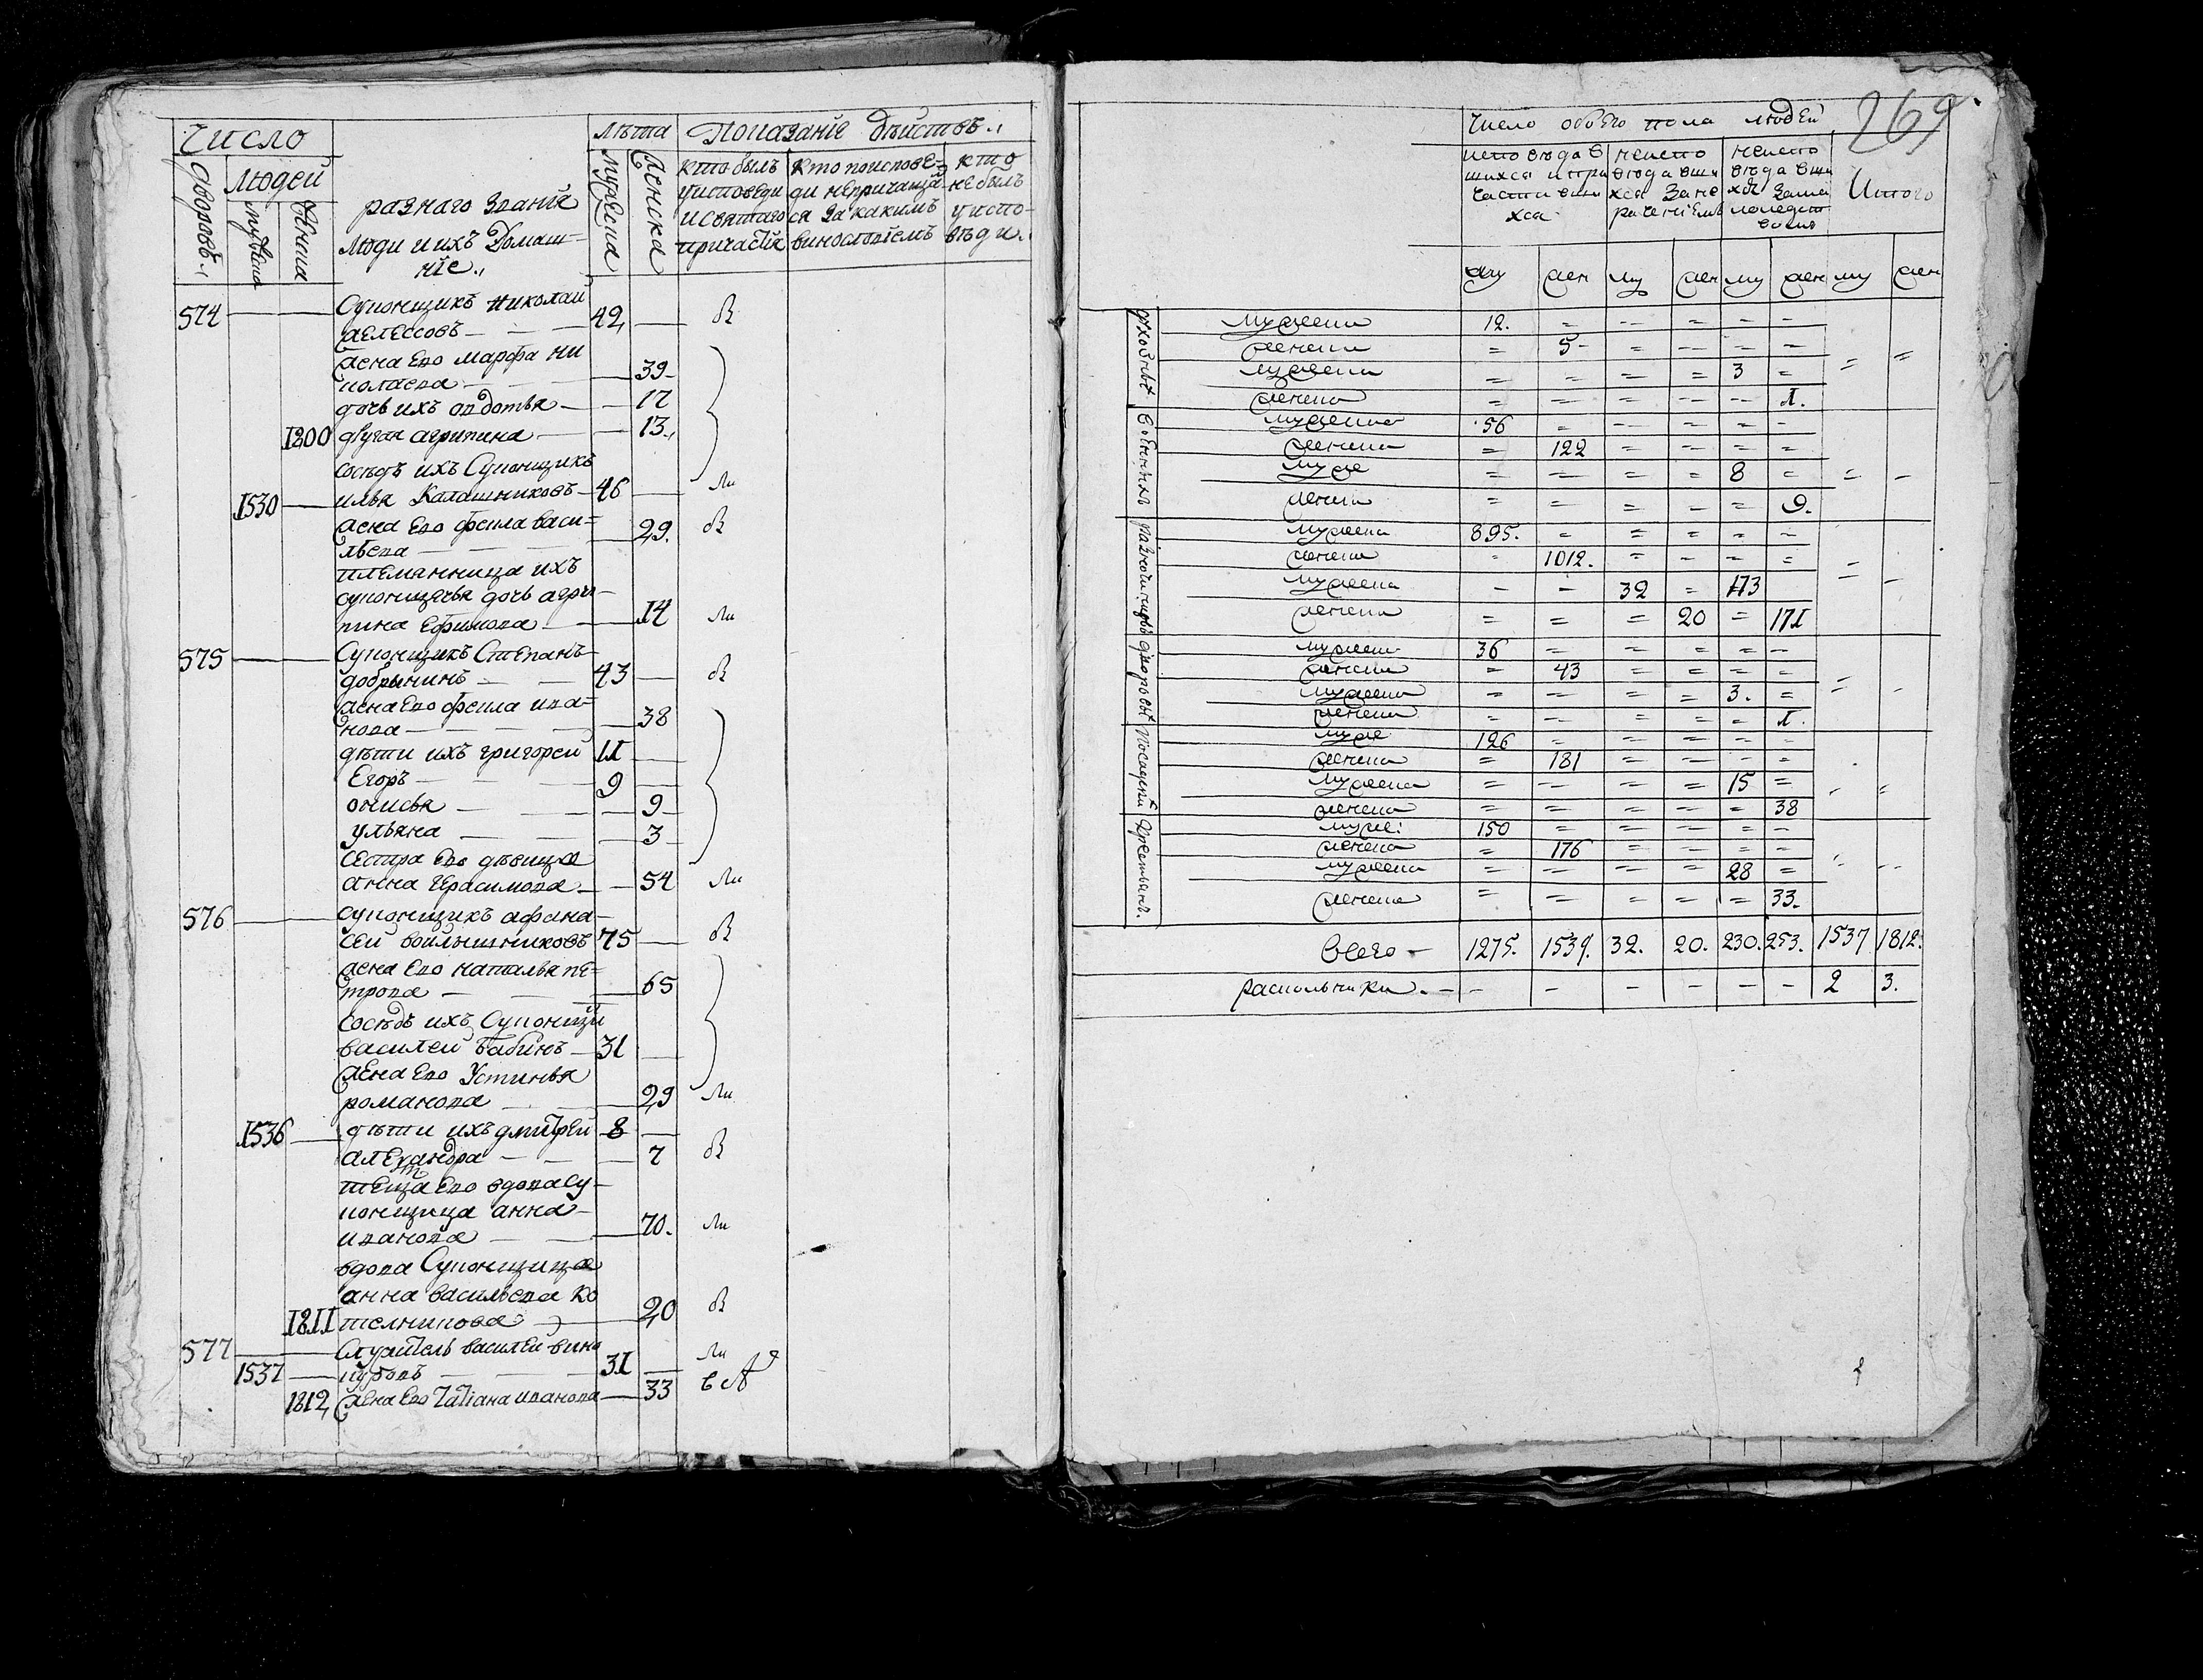 Число
Людей
Дворовъ
мужеска
женска
разнаго званїя
люди и ихъ Домаш=
нїе
лѣта
мужеска
женска
Показанїе дѣйствъ
кто былъ
у исповеди
и святаго
причастїя
кто по испове-
ди не причаща
ся за какимъ
винословїемъ
кто
не былъ
у испо-
вѣди
574
Суконщикъ Николай
42
жена ево марфа ни
колаева
39
дочь ихъ авдотья 17
1800 другая агрипина 13
сосѣдъ ихъ Суконщикъ
1530 илья Калашниковъ 46
жена ево фекла васи=
льева 29
племянница ихъ
суконщичья дочь агри-
пина Ефимова 14
575 Суконщикъ Степанъ
добрынинъ 43
жена ево фекла ива=
нова 38
дѣти ихъ григорей 11
Егоръ 9
9
ульяна 3
сестра ево дѣвица
анна герасимова 54
576 суконщикъ афана-
сей войлошниковъ 75
жена ево наталья пе=
трова 65
сосѣдъ ихъ Суконщи
василей бабинъ 31
жена ево Устинья
романова 29
1536 дѣти ихъ дмитрей 8
александра 7
теща ево вдова су-
конщица анна
иванова 70
вдова Суконщица
анна васильева ко
1811 телникова 20
577 Служитель василей вино
1537 куровъ 31
1812 жена ево Татїана иванова 33
269
Число обоего пола людей
исповѣдав
шихся и при
частивши
хся
неиспо
вѣдавши
хся за не
раченїемъ
неиспо
вѣдавши
хся за мало
лѣтст
вомъ
Итого
му жен му жен му жен му жен
Духовныхъ
мужеска 12.
женска 5
мужеска 3
женска 1.
Военныхъ
мужеска 56
женска 122
муже 8
женска 9.
разночинцовъ
мужеска 895.
женска 1012.
мужеска 32 173
женска 20 171
дворовы
мужеска 36
женска 43
мужеска 3.
женска 1.
Посацкихъ
муже 126
женска 181
мужеска 15
женска 38
крестьянъ.
муже: 150
женска 176
мужеска 28
женска 33.
Всего 1275. 1539. 32. 20. 230. 253. 1537 1812.
раскольники 2 3.